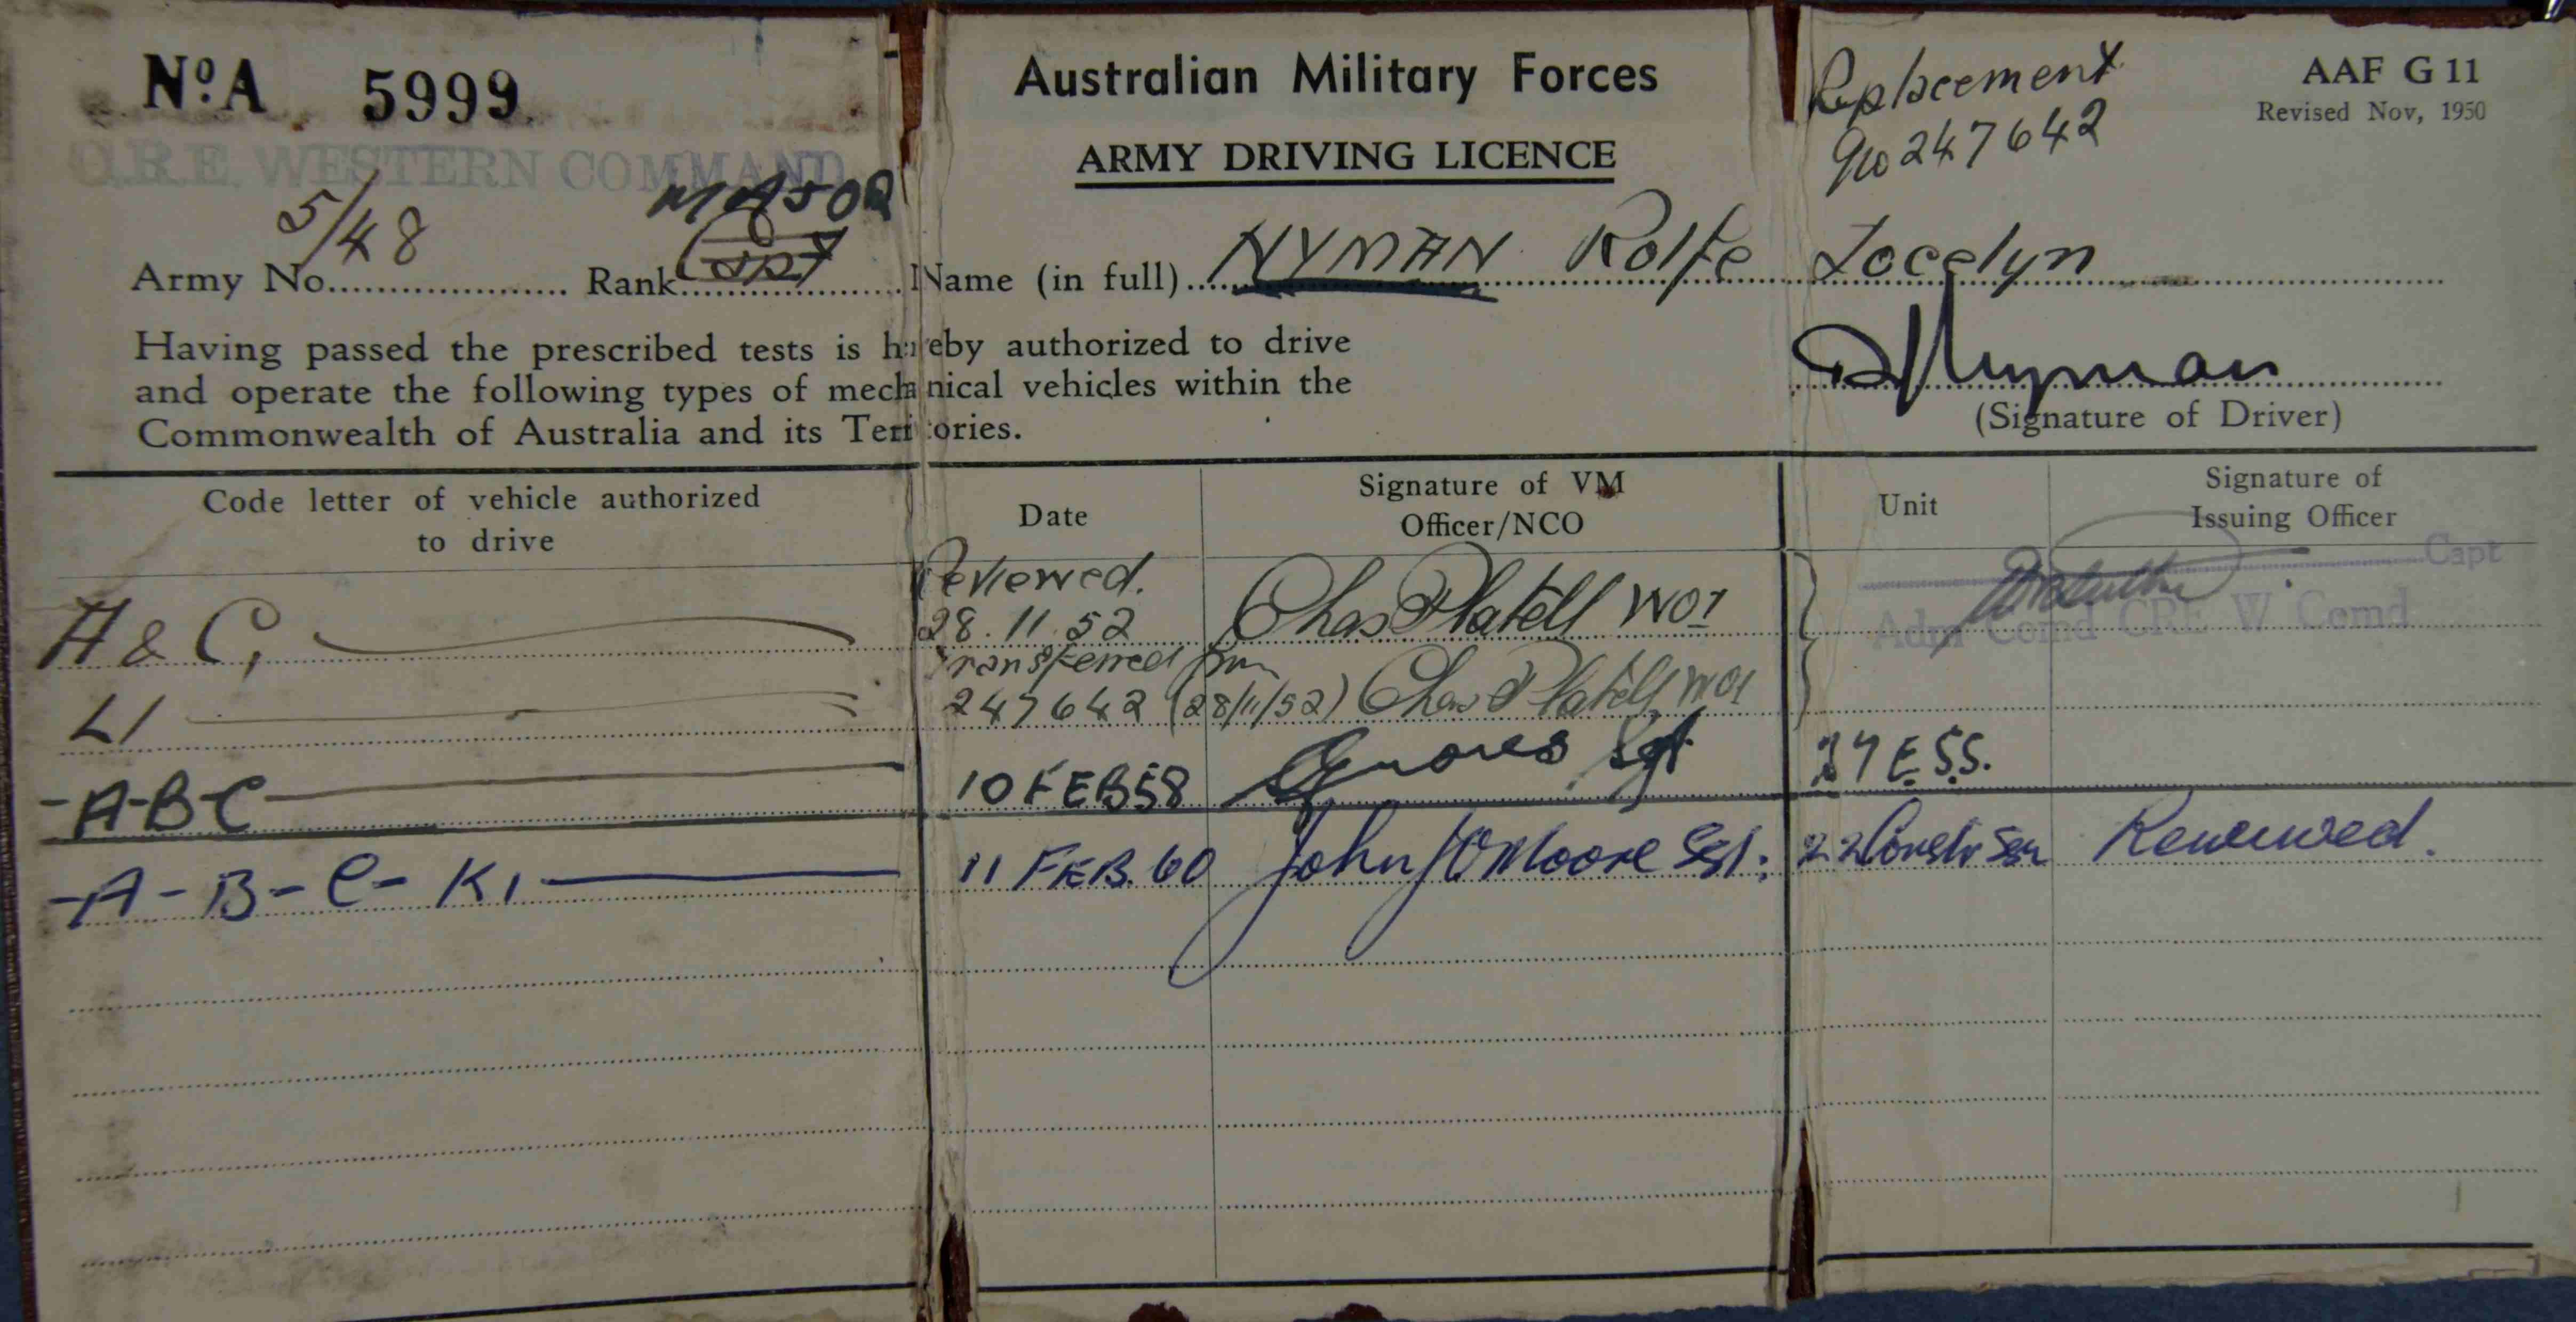 No. A 5999
C.R.E. WESTERN COMMAND
Australian Military Forces
ARMY DRIVING LICENCE
Replacement
No 247642
AAF G 11
Revised Nov, 1950
Army No. 5/48 Rank Capt MAJOR Name (in full) NYMAN Rolfe Jocelyn
Having passed the prescribed tests is hereby authorized to drive
and operate the following types of mechanical vehicles within the
Commonwealth of Australia and its Territories.
RJNyman
(Signature of Driver)
Code letter of vehicle authorized
to drive
Date
Signature of VM
Officer/NCO
Unit
Signature of
Issuing Officer
A & C, Reviewed. 28.11.52 Chas Platell WO1
Capt
Adm Comd CRE W Comd
L1 Transferred from 247642 (28/11/52) Chas Platell WO1
-A-B-C 10 FEB 58 Sgt E.S.S.
-A-B-C-K1 11 FEB. 60 John Moore Sgt. 22 Constr Sqn Renewed.